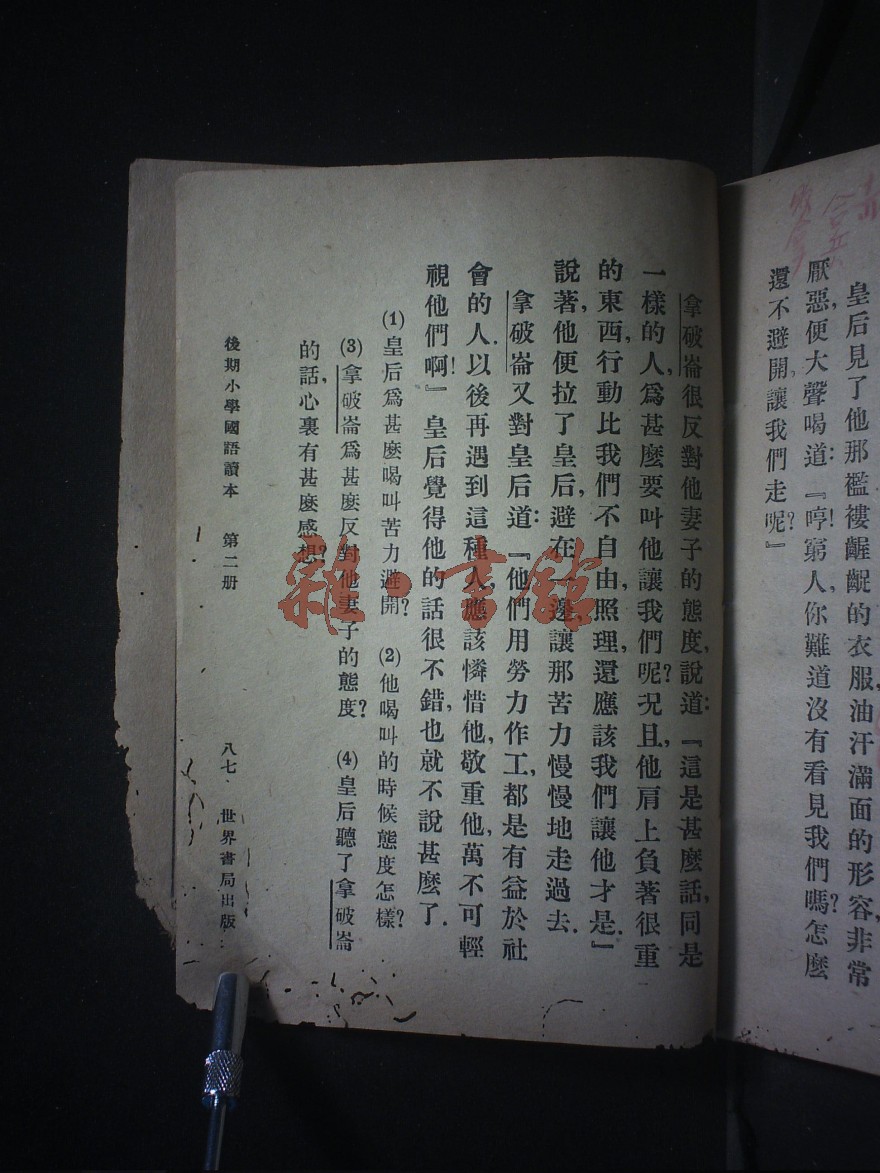 皇后見了他那襤褸齷齪的衣服,油汗滿面的形容,非常
厭惡,便大聲喝道:『哼!窮人,你難道沒有看見我們嗎?怎麼
還不避開,讓我們走呢?』
拿破崙很反對他妻子的態度,說道:『這是甚麼話,同是
一樣的人,爲甚麼要叫他讓我們呢?况且,他肩上負著很重
的東西,行動比我們不自由,照理,還應該我們讓他才是.』
說著,他便拉了皇后,避在一邊,讓那苦力慢慢地走過去.
拿破崙又對皇后道:『他們用勞力作工,都是有益於社
會的人.以後再遇到這種人,應該憐惜他,敬重他,萬不可輕
視他們啊!』皇后覺得他的話很不錯,也就不說甚麼了.
(1)皇后爲甚麼喝叫苦力避開? (2)他喝叫的時候態度怎樣?
(3)拿破崙爲甚麼反對他妻子的態度? (4)皇后聽了拿破崙
的話,心裏有甚麼感想?
後期小學國語讀本 第二册 八七. 世界書局出版
雜·書館